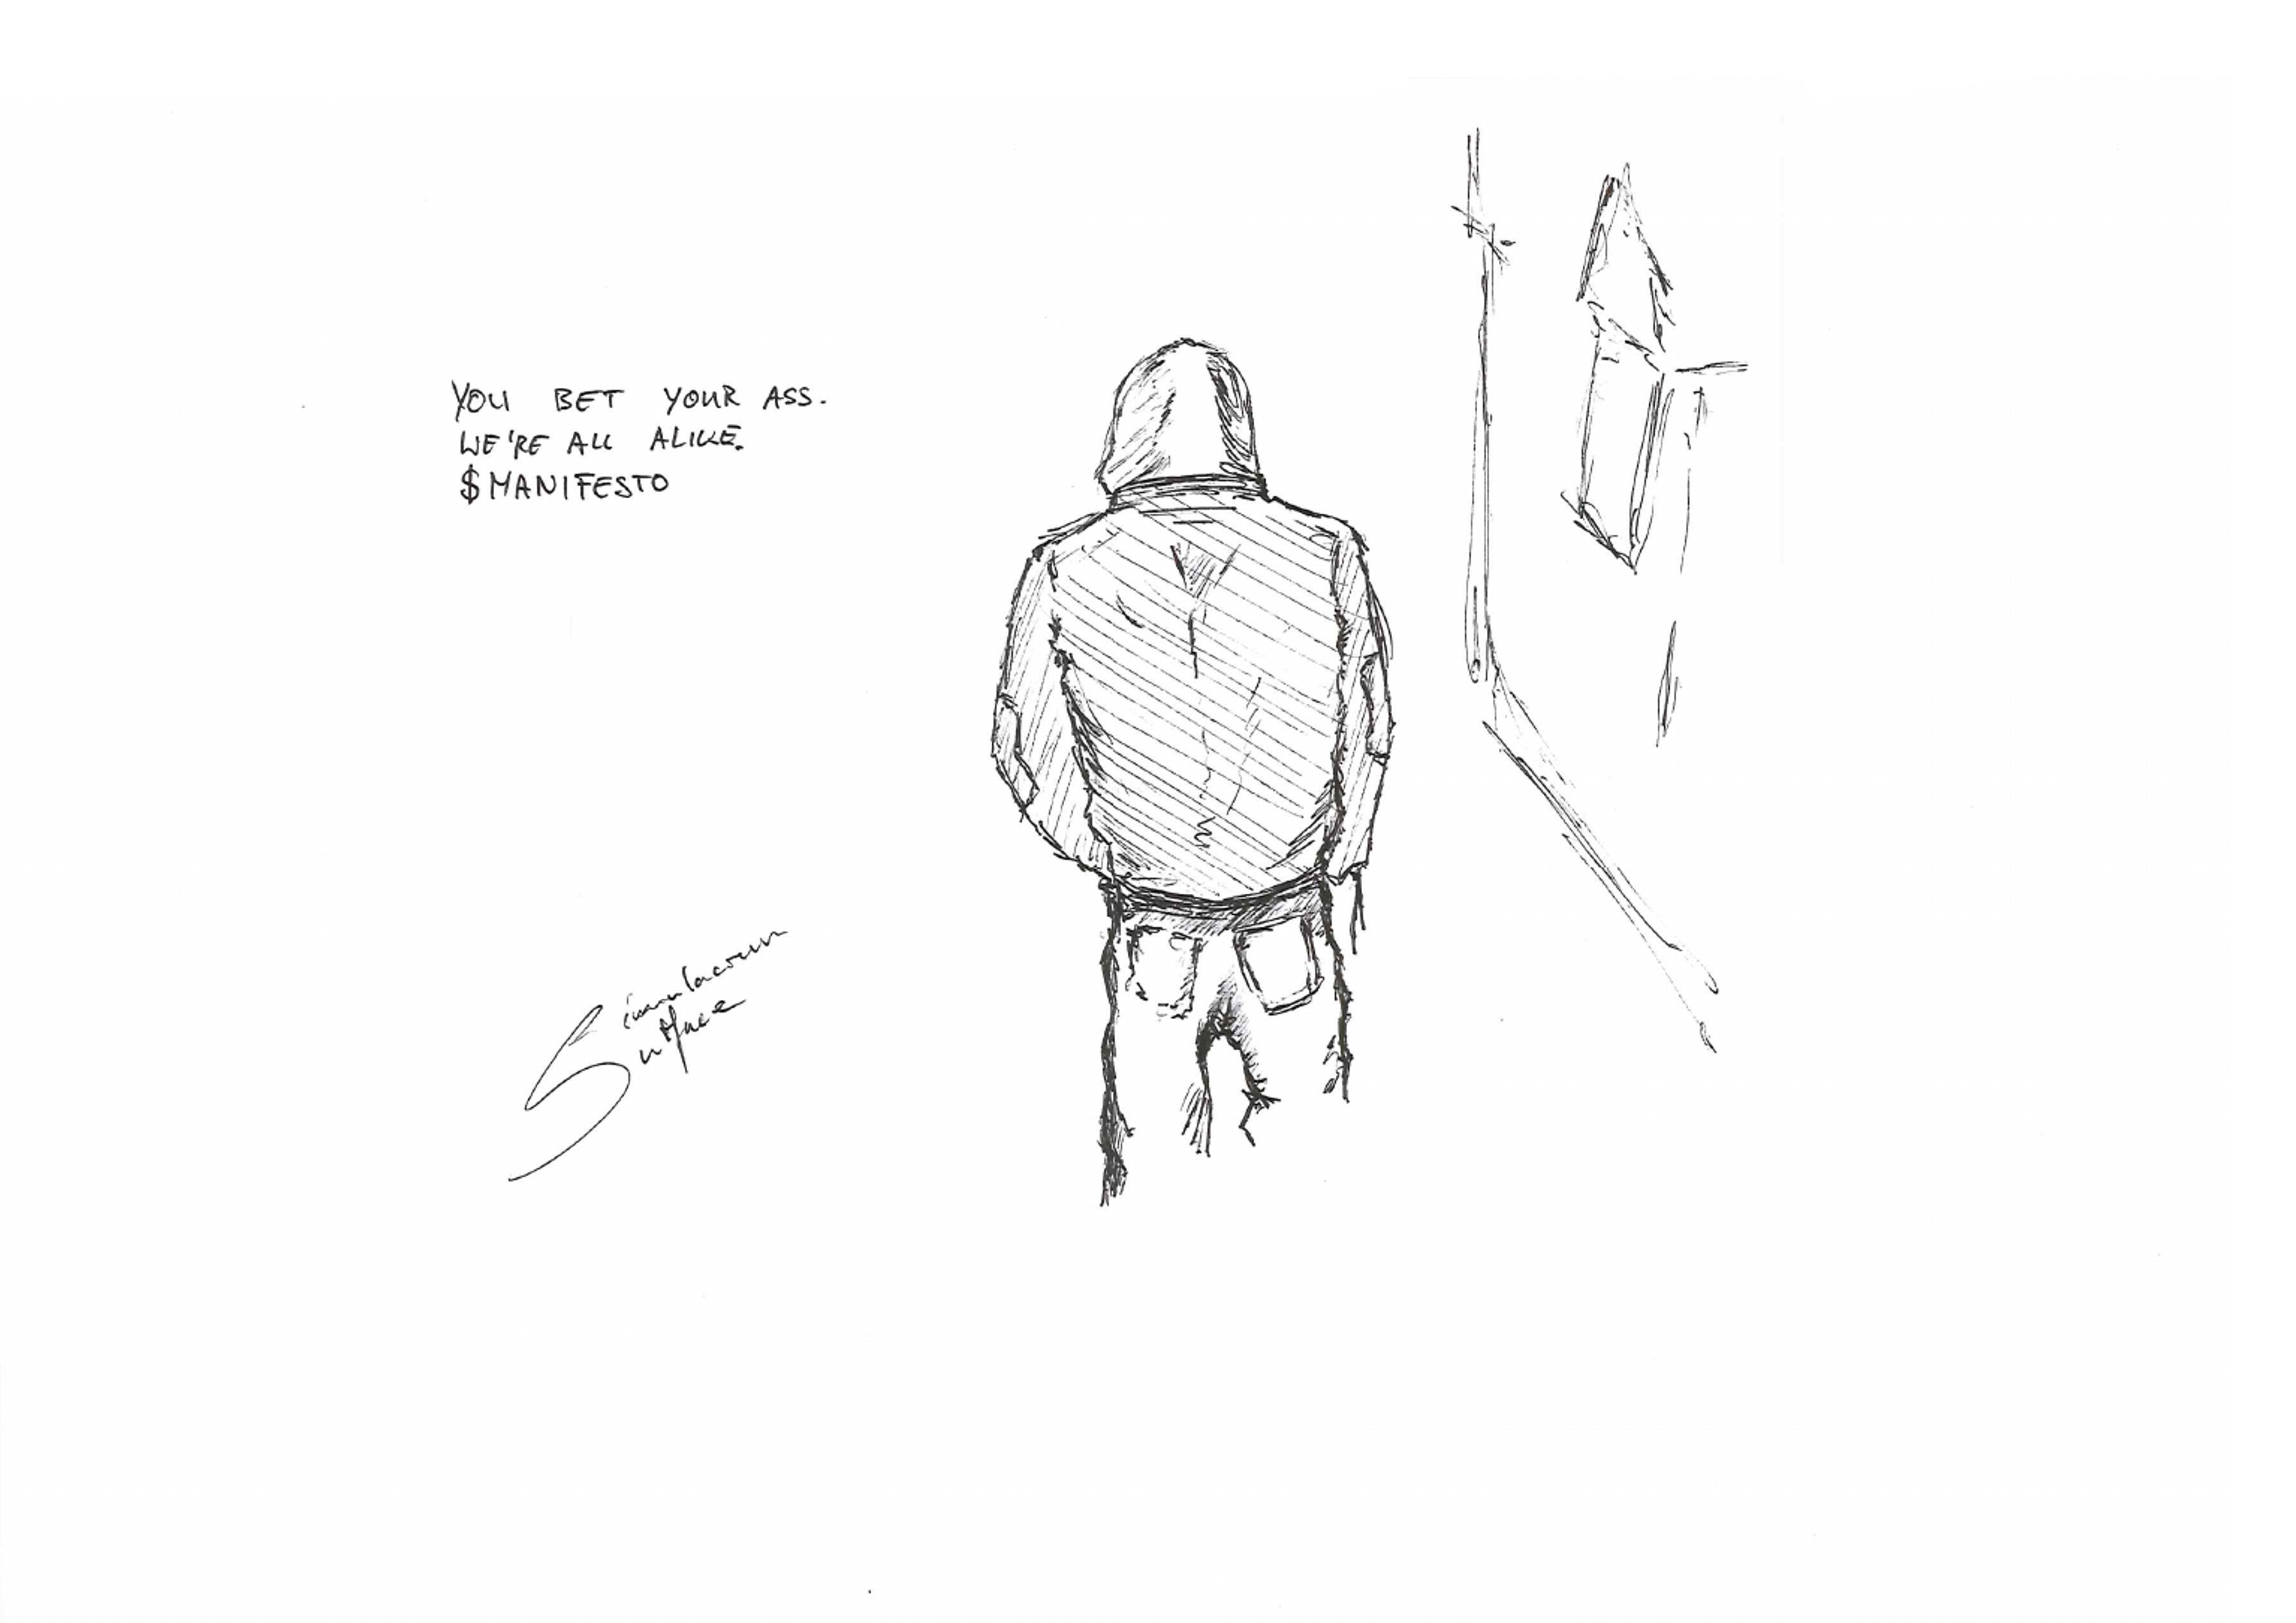 YOU BET YOUR ASS.
WE'RE ALL ALIKE.
$MANIFESTO
Simulacrum